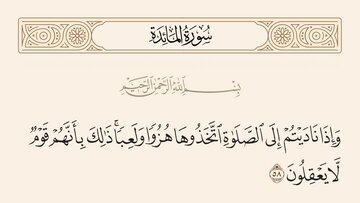 سُورَةُ المَائِدَةِ
بِسْمِ اللَّهِ الرَّحْمَٰنِ الرَّحِيمِ
وَإِذَا نَادَيْتُمْ إِلَى ٱلصَّلَوٰةِ ٱتَّخَذُوهَا هُزُوًا وَلَعِبًا ۚ ذَٰلِكَ بِأَنَّهُمْ قَوْمٌ
لَّا يَعْقِلُونَ ٥٨